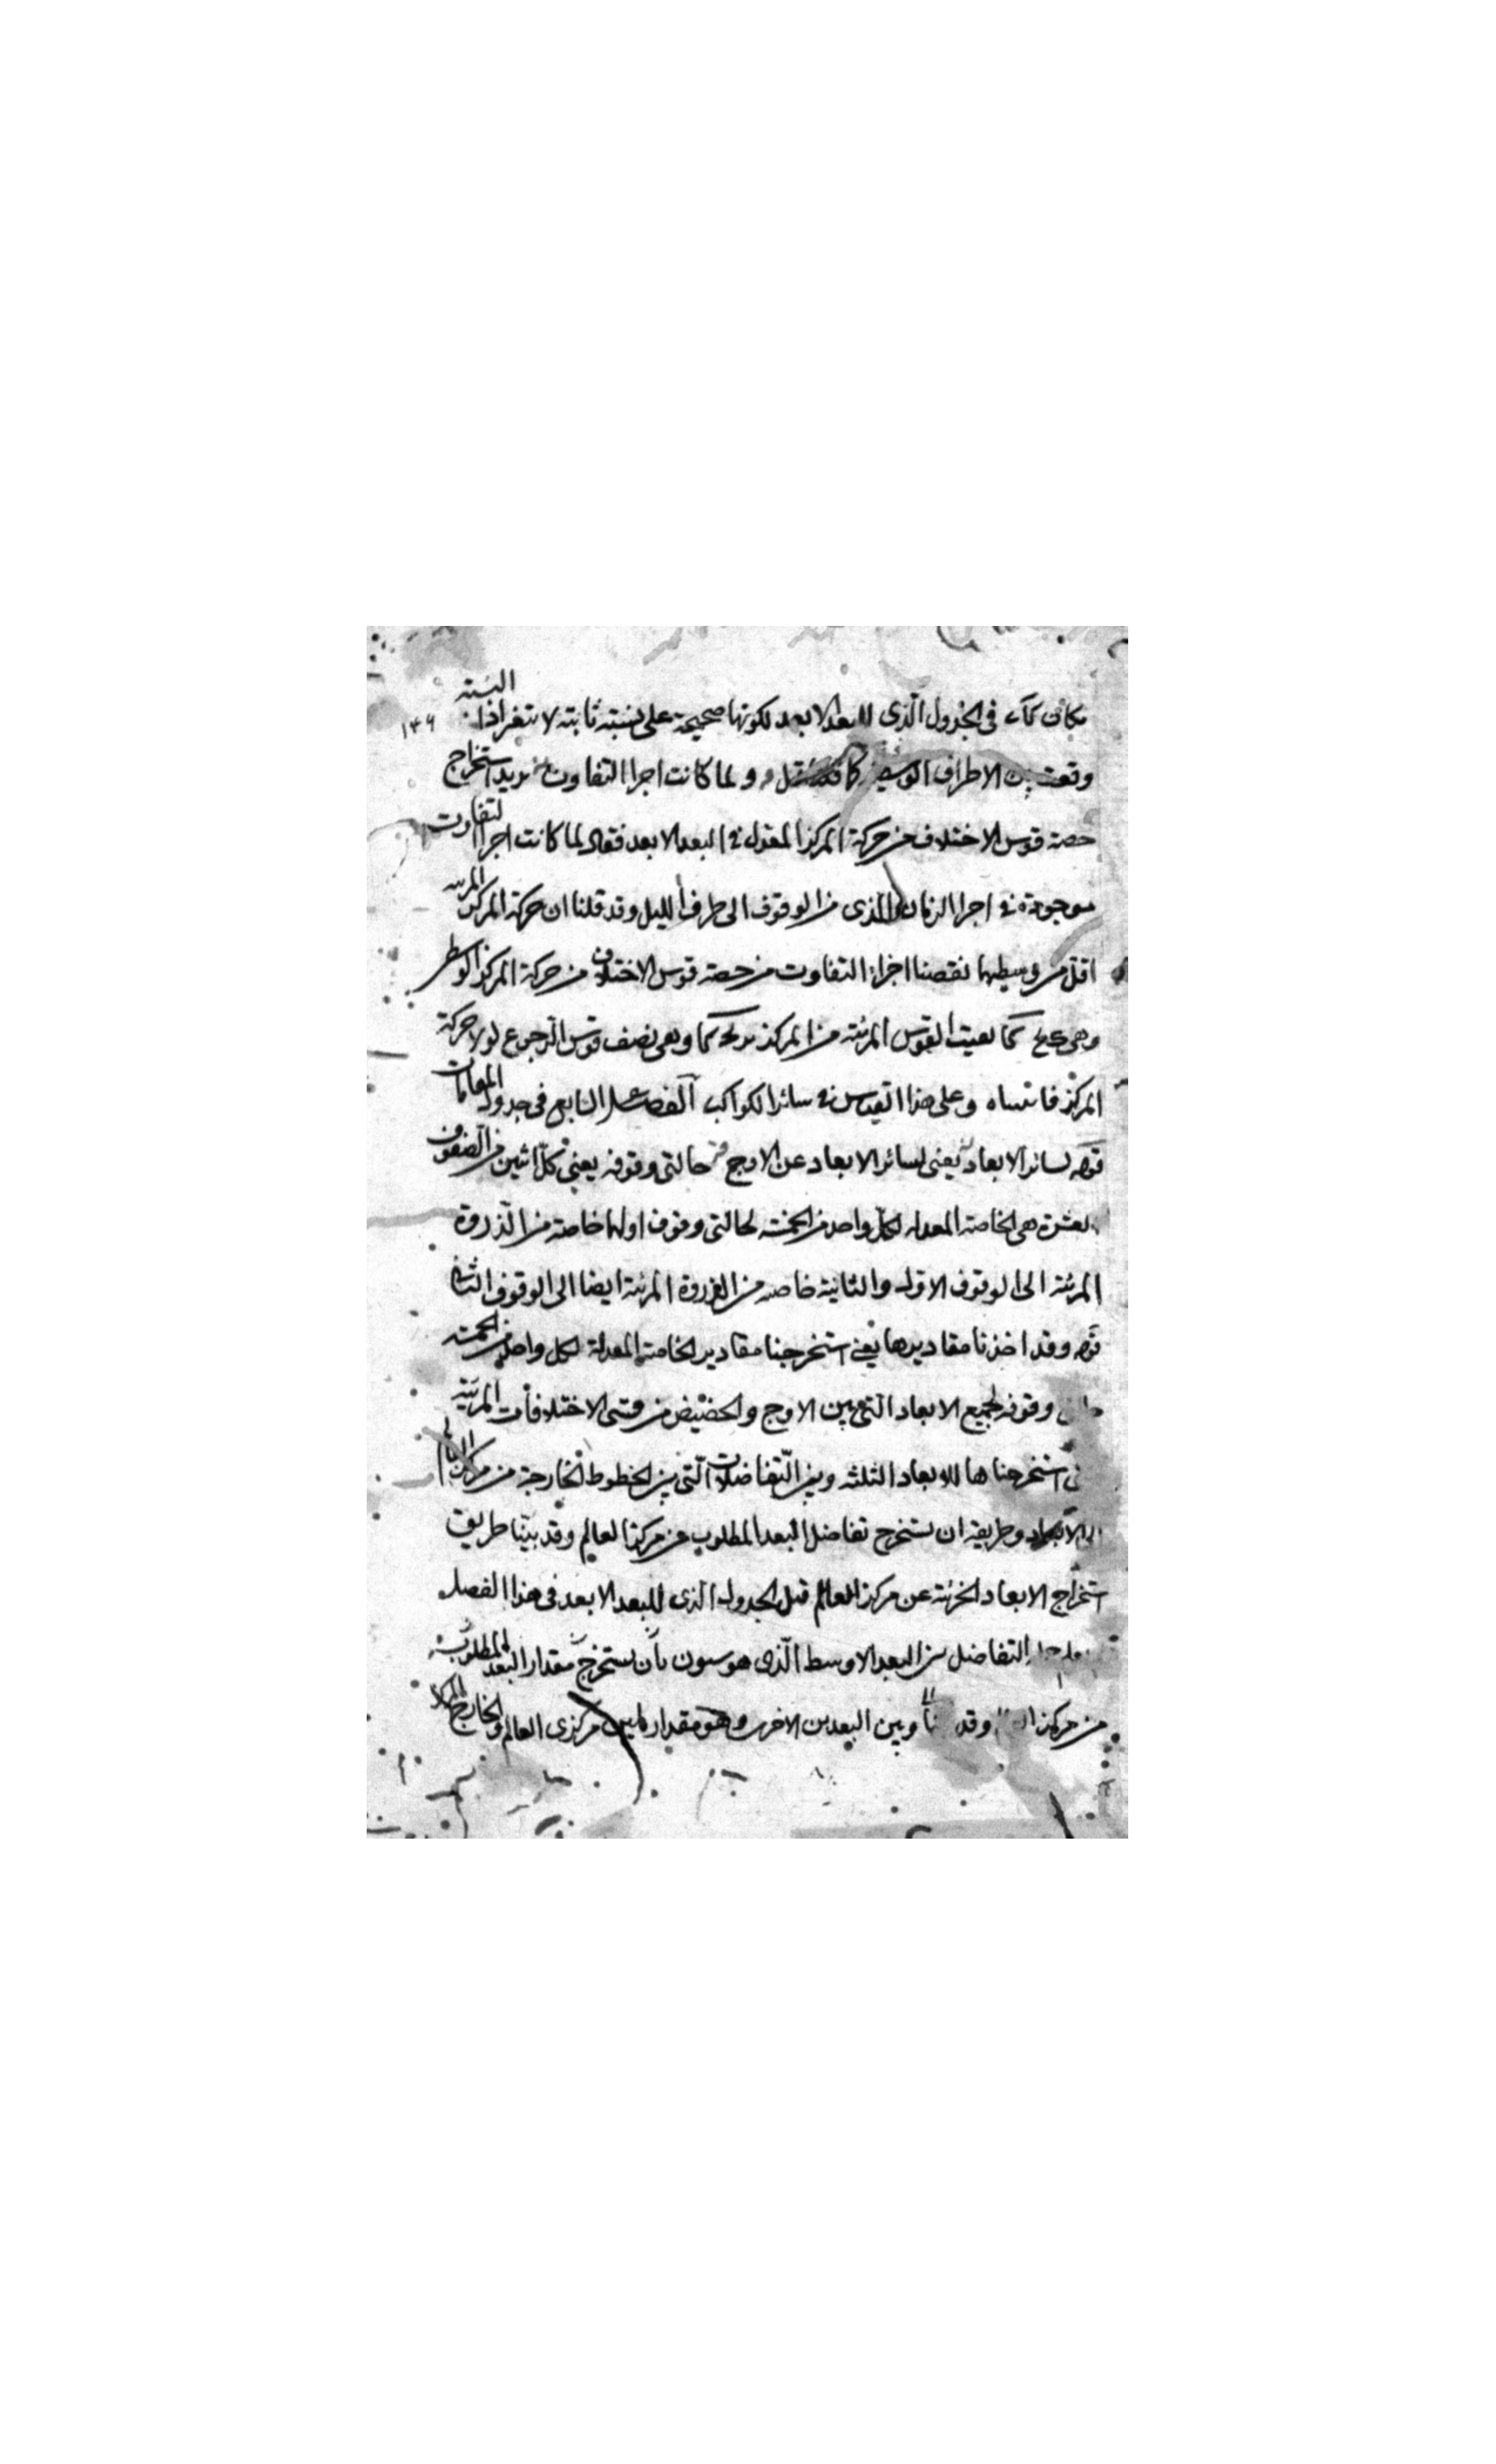 مكان كماء فى الجدول الّذى للبعد الابعد لكونها صحيحة على نسبته ثابته لا تتغير اذا البتة
١٣٩
وقعت بين الاطراف الوسط ولما كانت اجزا التفاوت يريد استخراج
حصة قوس الاختلاف من حركة المركز المعدل فى البعد الابعد فقال لما كانت اجزا التفاوت
موجودة فى اجزا الزمان الذى من الوقوف الى طرف الليل وقد قلنا ان حركة المركز المرئية
اقل من وسطها نقصنا اجزاء التفاوت من حصة قوس الاختلاف من حركة المركز الوسطى
وهى كما بقيت القوس المرئية من المركز كما وهى نصف قوس الرجوع لولا حركة
المركز وعلى هذا القياس فى سائر الكواكب الفصل السابع فى جدول المقامات
قوله لسائر الابعاد يعنى لسائر الابعاد عن الاوج حالتى وقوفه يعنى كلّ اثنين من الصفوف
العشرة هى الخاصة المعدلة لكلّ واحد من الخمسة لحالتى وقوف اولها خاصة من الذروة
المرئية الى الوقوف الاول والثانية خاصه من الذروة المرئية ايضا الى الوقوف الثانى
قوله وقد اخذنا مقاديرها يعنى استخرجنا مقادير الخاصة المعدلة لكل واحد من الخمسة
وقوفه لجميع الابعاد التى بين الاوج والحضيض من الاختلافات المرئية
استخرجناها للابعاد الثلثه وبين التفاضلات الّتى بين الخطوط الخارجة من مركز
الابعاد وطريقه ان نستخرج تفاضل البعد المطلوب عن مركز العالم وقد بيّنا طريق
استخراج الابعاد الجزئية عن مركز العالم قبل الجدول الذى للبعد الابعد فى هذا الفصل
التفاضل بين البعد الاوسط الّذى هو ستون بأن نستخرج مقدار البعد المطلوب
من مركز وقد وبين البعدين الاخرين وهو مقدار ما بين مركزى العالم والخارج